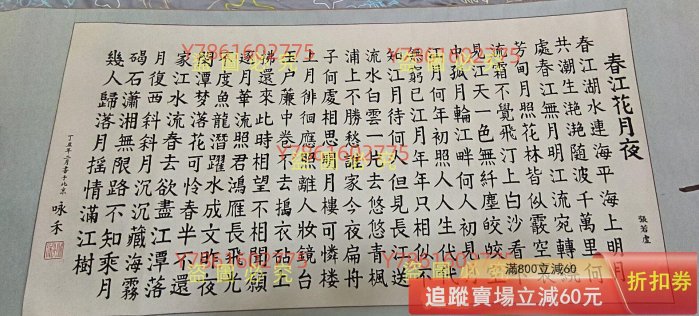 春江花月夜
張若虛
春江潮水連海平海上明月
共潮生灩灩隨波千萬里何
處春江無月明江流宛轉
芳甸月照花林皆似霰空
流霜不覺飛汀上白沙看
見江天一色無纖塵皎皎
中孤月輪江畔何人初見
江月何年初照人人生代
無窮已江月年年只相似不
知江月待何人但見長江送
流水白雲一片去悠悠青楓
浦上不勝愁誰家今夜扁舟
子何處相思明月樓可憐樓
上月徘徊應照離人妝鏡台
玉户簾中卷不去搗衣砧上
拂還來此時相望不相聞願
逐月華流照君鴻雁長飛光
不度魚龍潛躍水成文昨夜
閑潭夢落花可憐春半不還
家江水流春去欲盡江潭落
月復西斜斜月沉沉藏海霧
碣石瀟湘無限路不知乘月
幾人歸落月搖情滿江樹
咏禾
Y7861602775
Y7861602775
Y7861602775
Y7861602775
Y7861602775
盜圖必究
盜圖必究
盜圖必究
滿800立減60
追蹤賣場立減60元
折扣券